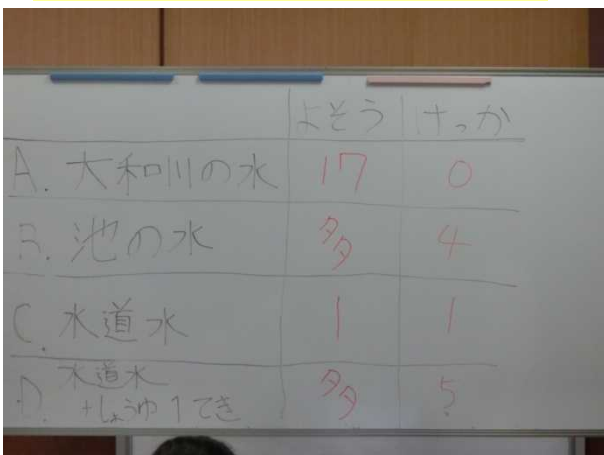 よそう けっか
A. 大和川の水 17 0
B. 池の水 多 4
C. 水道水 1 1
D. 水道水 多 5
+しょうゆ1てき